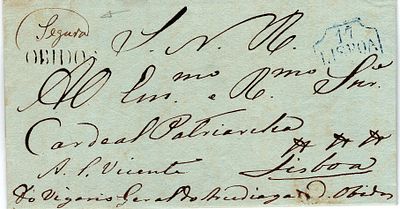 Segura
OBIDOS
S. N. R.
17
LISBOA
Ao Em.mo e R.mo Snr.
Cardeal Patriarcha
A. S. Vicente
Lisboa
Do Vigario Geral do Arcediagado d'Obidos